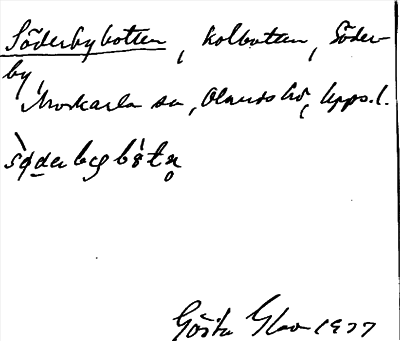 Söderbybotten, kolbotten, Söder-
by,
Morkarla sn, Olands hd, Upps.l.
Gösta Glav 1977